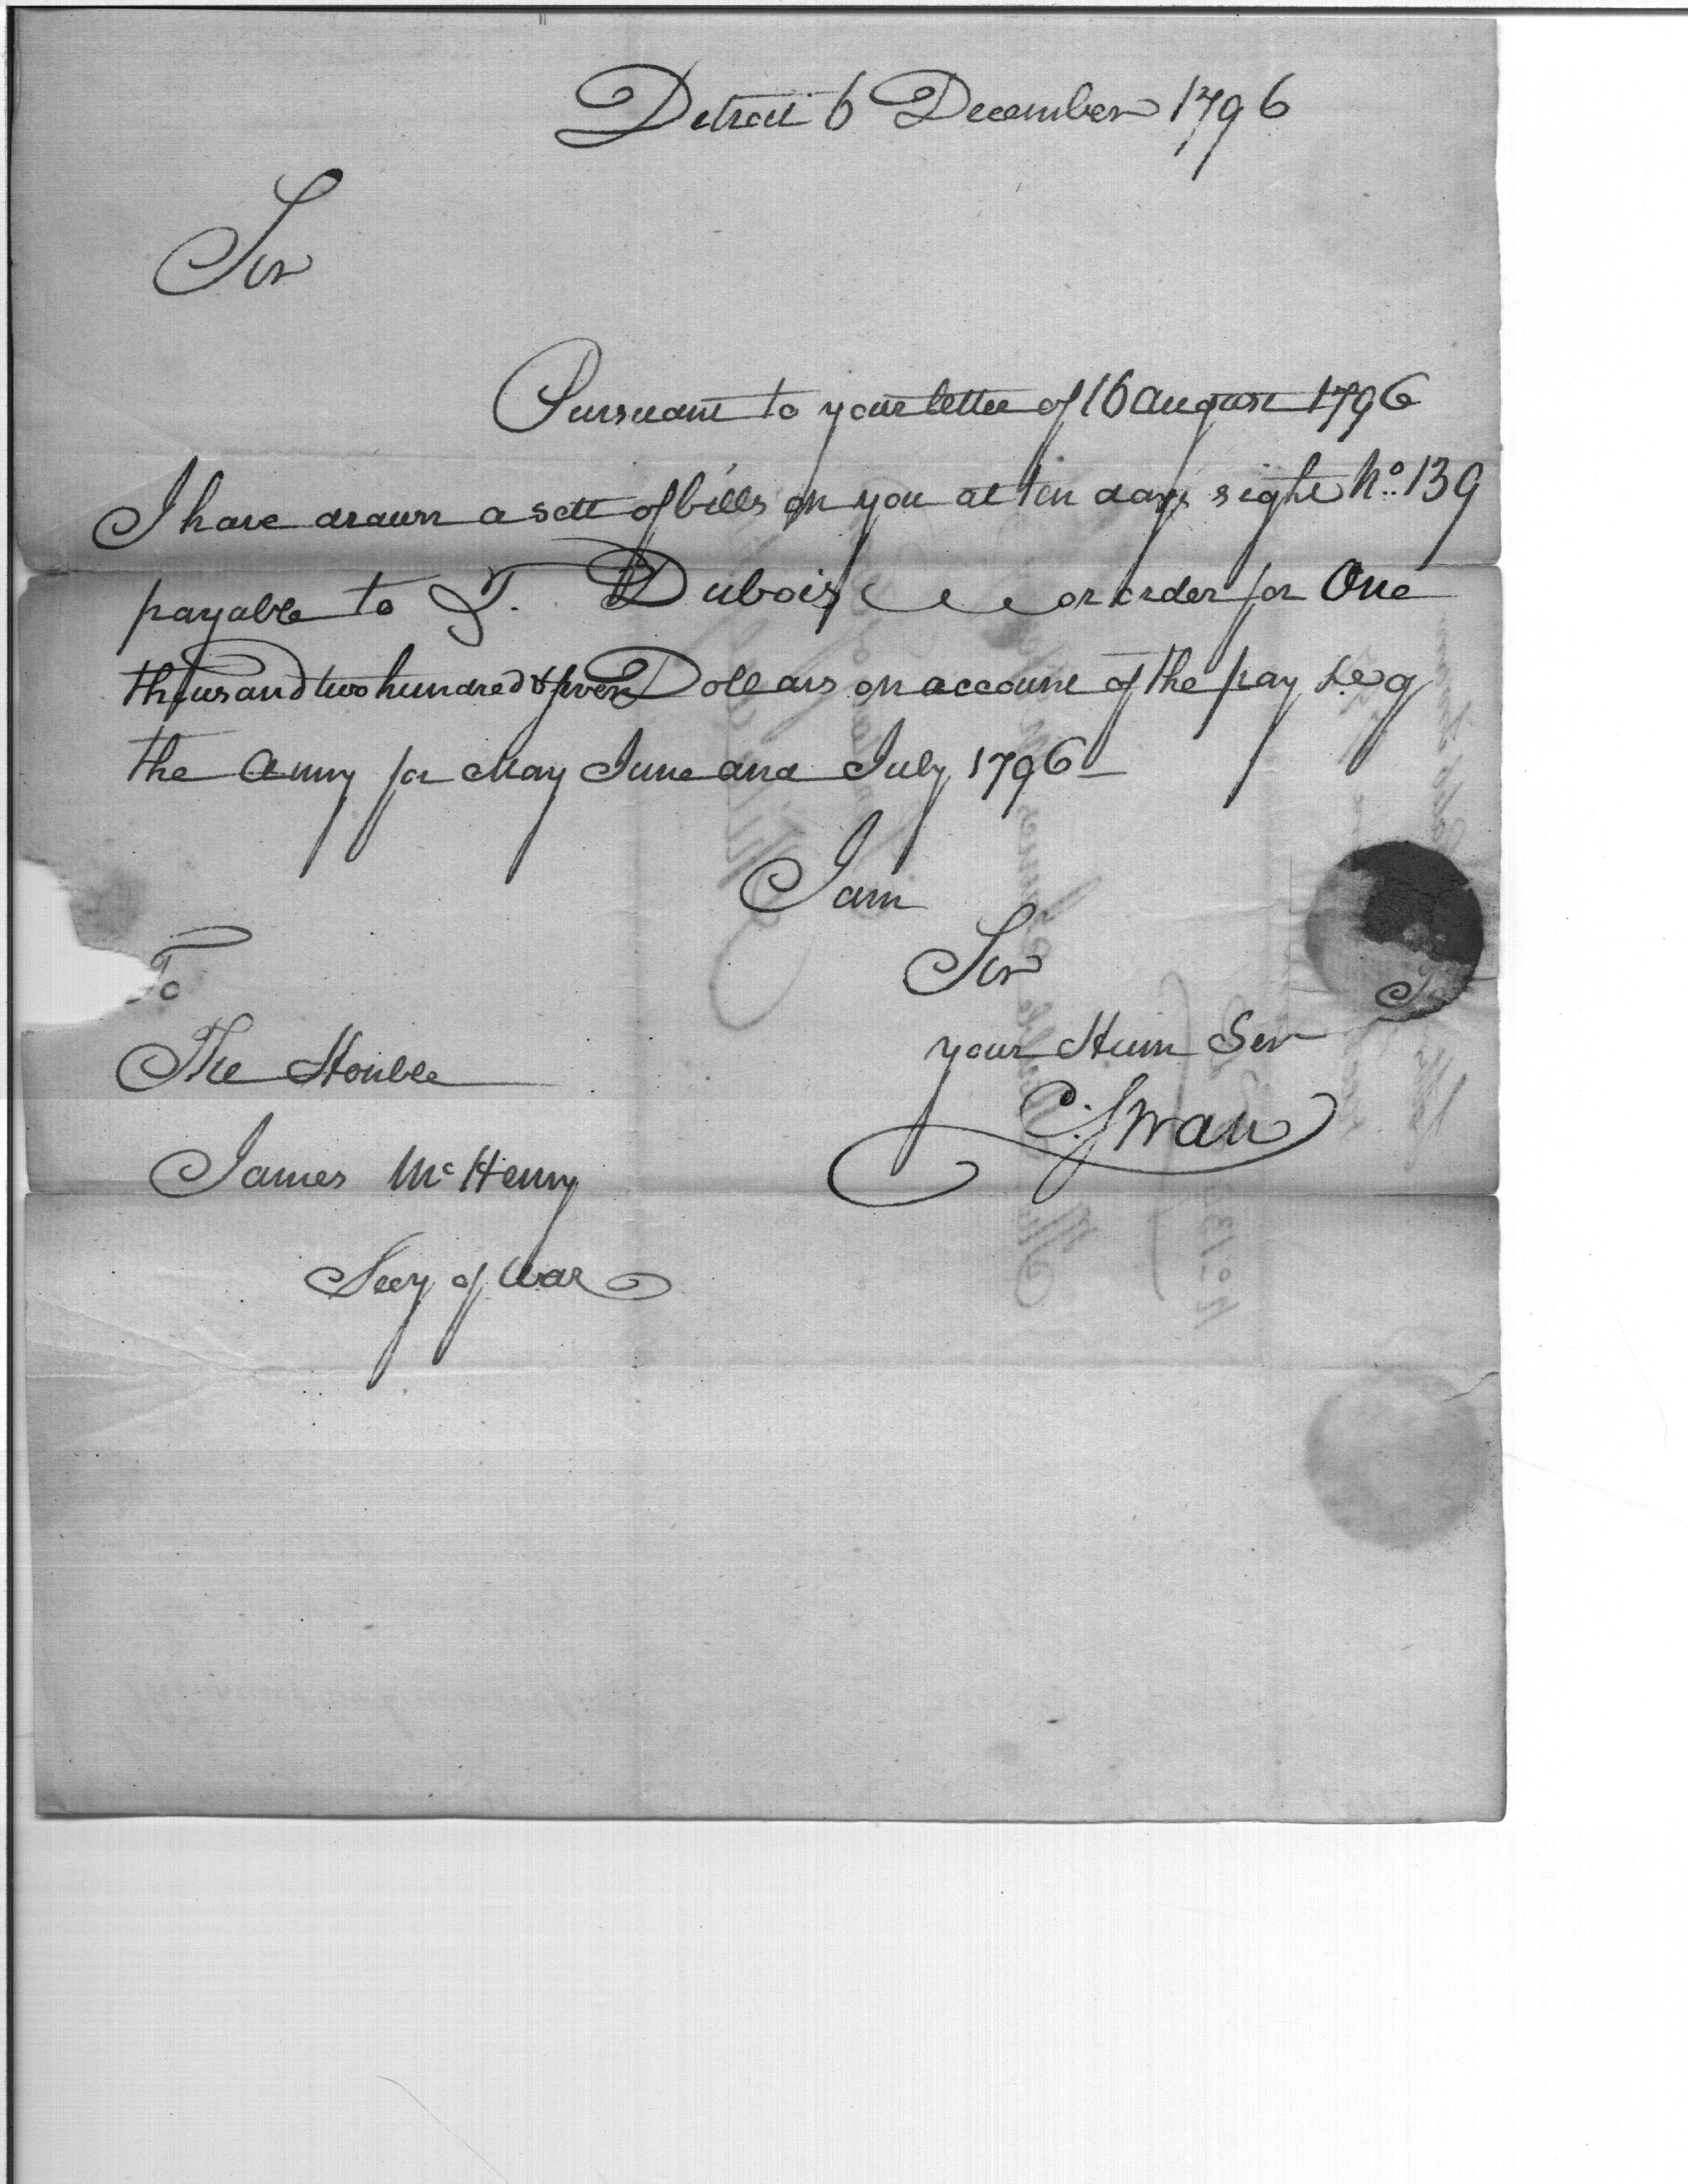 Detroit 6 December 1796
Sir
Pursuant to your letter of 16 August 1796
I have drawn a sett of bills on you at ten days sight No. 139
payable to T. Dubois or order for One
thousand two hundred & Dollars on account of the pay &c of
the Army for May June and July 1796 –
I am
Sir
your Hum Ser
C. Swan
To
The Honble
James McHenry
Secy of War